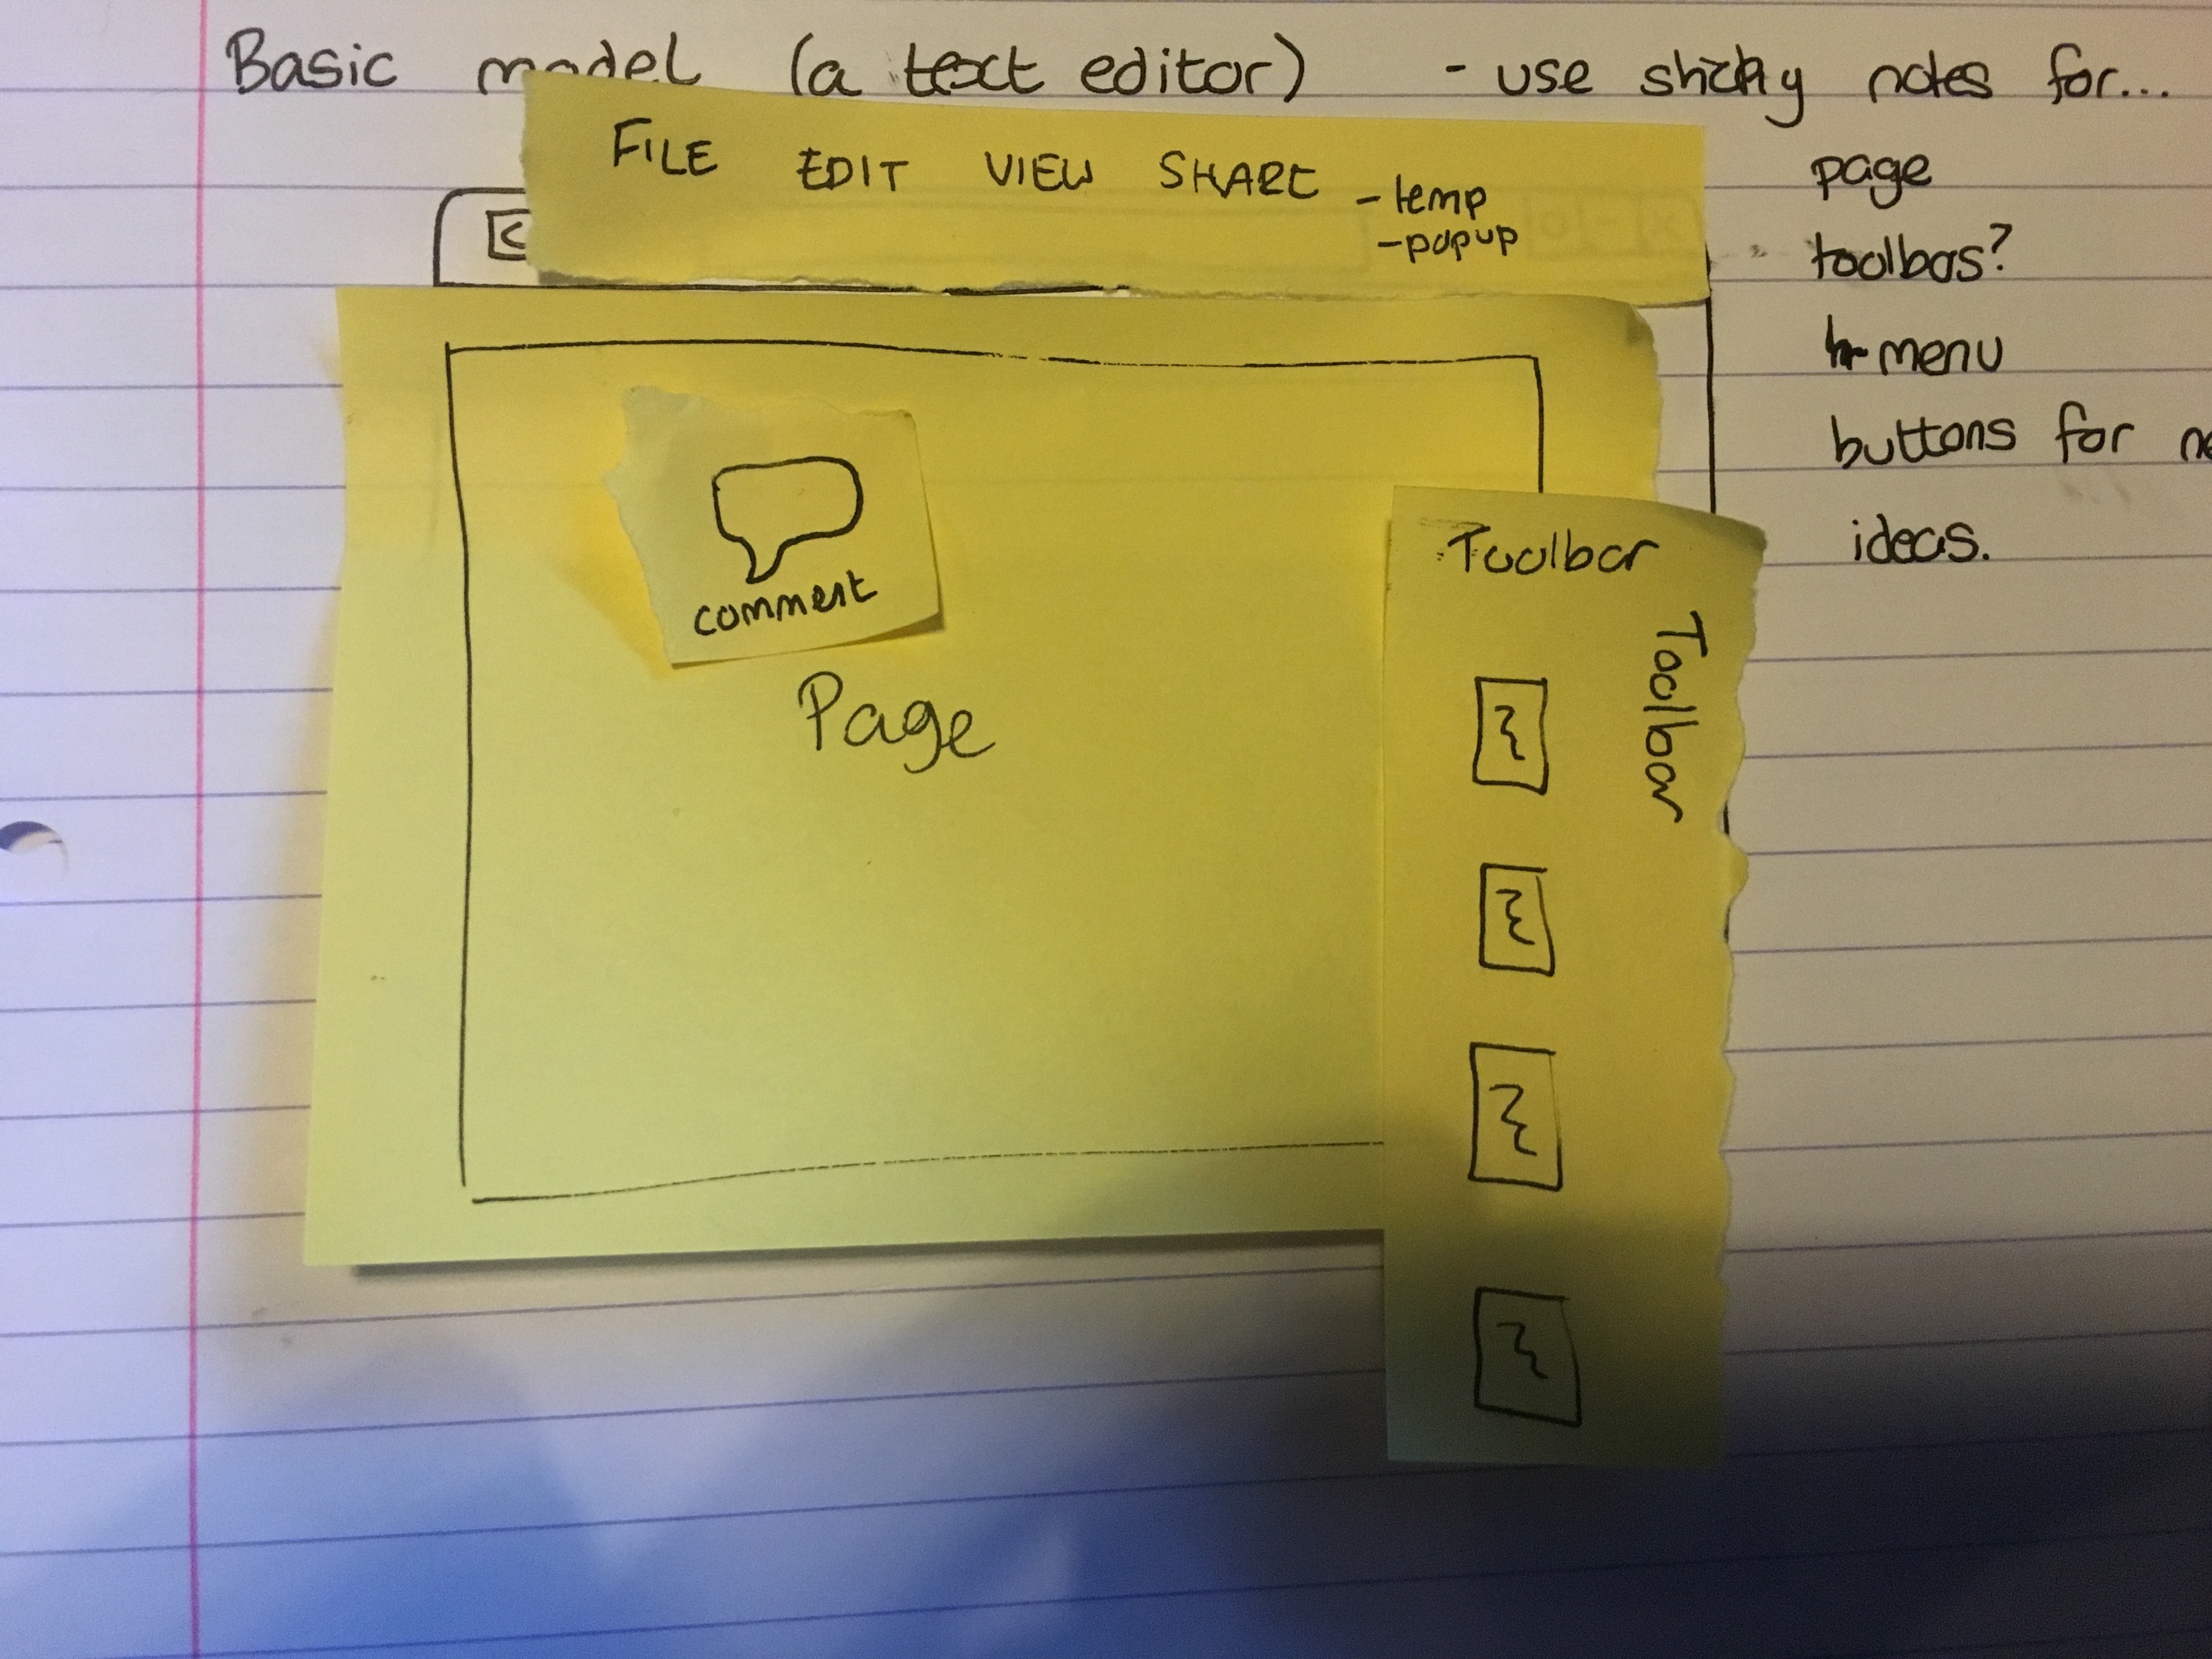 Basic model (a text editor) - use sticky notes for...
page
toolbars?
menu
buttons for
ideas.
FILE EDIT VIEW SHARE - temp
- popup
comment
Page
Toolbar
Toolbar